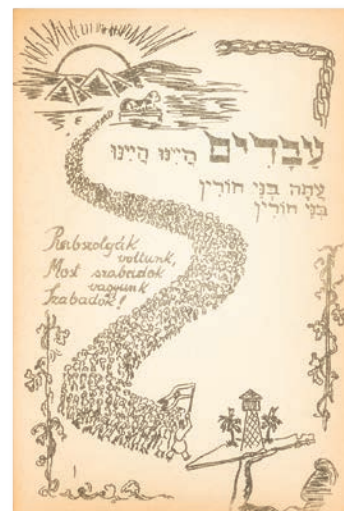 עֲבָדִים הָיִינוּ הָיִינוּ
עַתָּה בְּנֵי חוֹרִין
בְּנֵי חוֹרִין
Rabszolgák
voltunk,
Most szabadok
vagyunk
Szabadok!